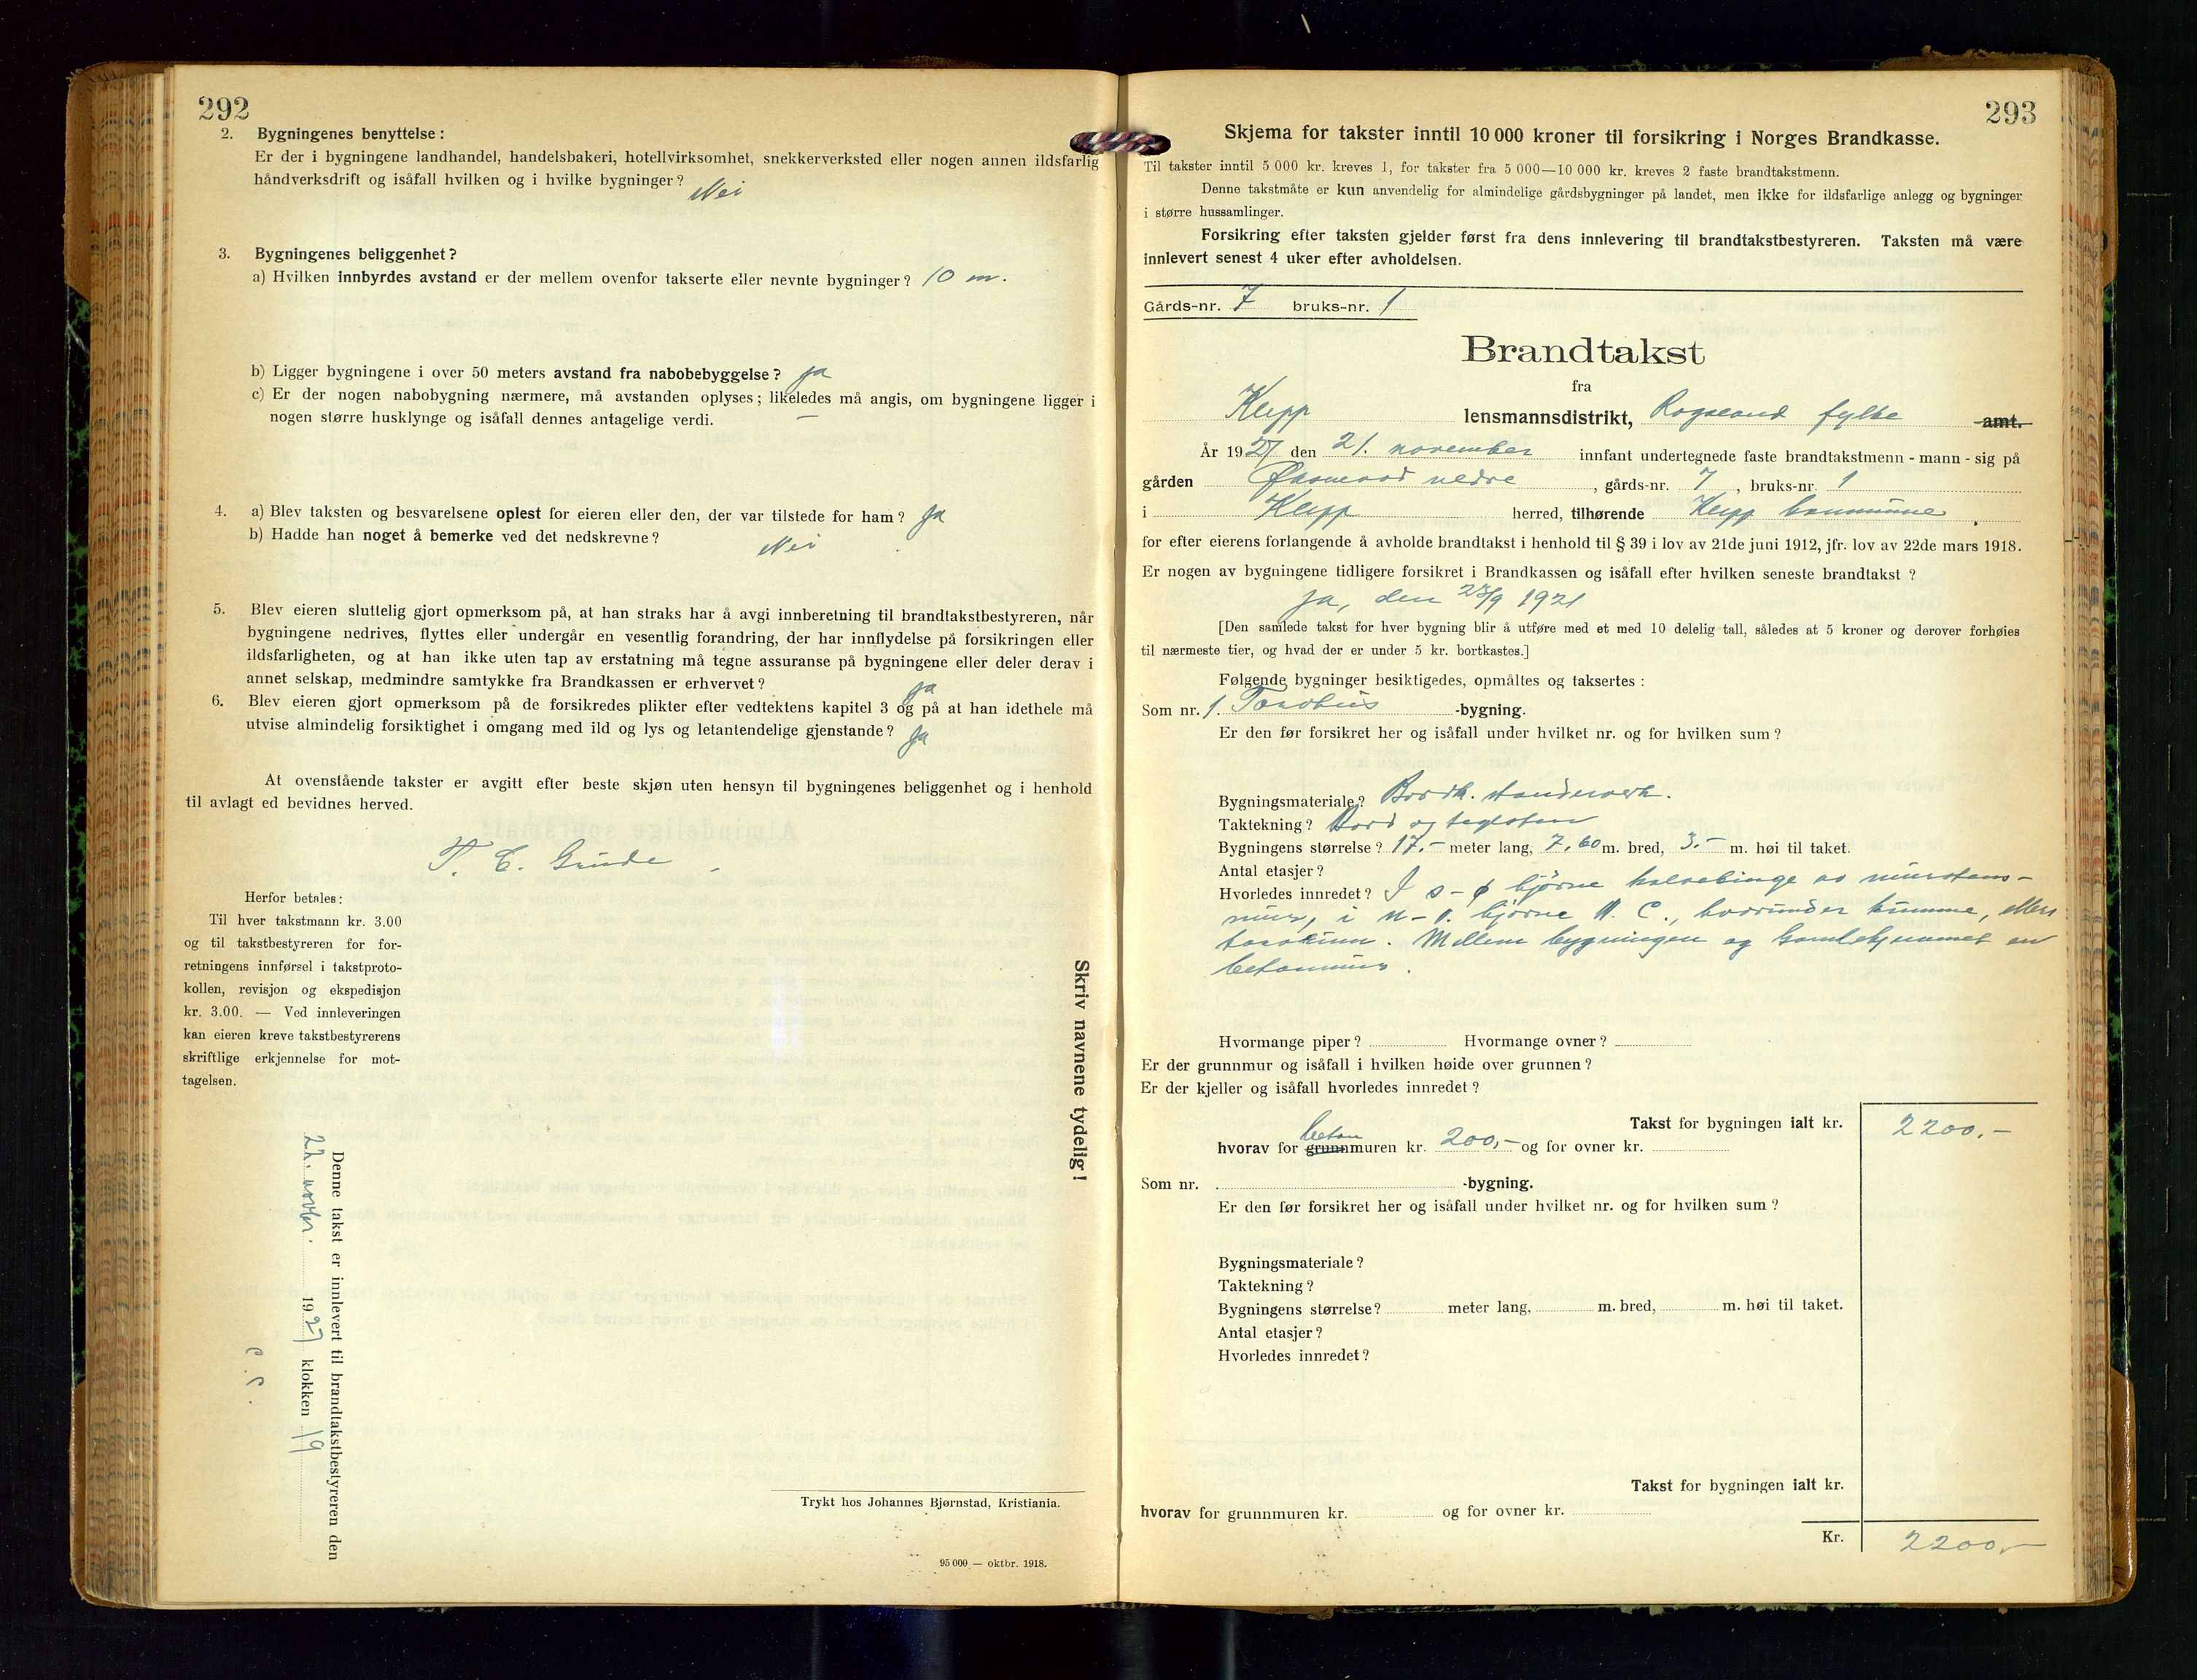 292
2. Bygningenes benyttelse:
Er der i bygningene landhandel, handelsbakeri, hotellvirksomhet, snekkerverksted eller nogen annen ildsfarlig
håndverksdrift og isåfall hvilken og i hvilke bygninger? Nei
3. Bygningenes beliggenhet?
a) Hvilken innbyrdes avstand er der mellem ovenfor takserte eller nevnte bygninger? 10 m.
b) Ligger bygningene i over 50 meters avstand fra nabobebyggelse? ja
c) Er der nogen nabobygning nærmere, må avstanden oplyses; likeledes må angis, om bygningene ligger i
nogen større husklynge og isåfall dennes antagelige verdi. —
4. a) Blev taksten og besvarelsene oplest for eieren eller den, der var tilstede for ham? Ja
b) Hadde han noget å bemerke ved det nedskrevne? Nei
5. Blev eieren sluttelig gjort opmerksom på, at han straks har å avgi innberetning til brandtakstbestyreren, når
bygningene nedrives, flyttes eller undergår en vesentlig forandring, der har innflydelse på forsikringen eller
ildsfarligheten, og at han ikke uten tap av erstatning må tegne assuranse på bygningene eller deler derav i
annet selskap, medmindre samtykke fra Brandkassen er erhvervet? ja
6. Blev eieren gjort opmerksom på de forsikredes plikter efter vedtektens kapitel 3 og på at han idethele må
utvise almindelig forsiktighet i omgang med ild og lys og letantendelige gjenstande? Ja
At ovenstående takster er avgitt efter beste skjøn uten hensyn til bygningenes beliggenhet og i henhold
til avlagt ed bevidnes herved.
T. E. Grude
Herfor betales:
Til hver takstmann kr. 3.00
og til takstbestyreren for for-
retningens innførsel i takstproto-
kollen, revisjon og ekspedisjon
kr. 3.00. — Ved innleveringen
kan eieren kreve takstbestyrerens
skriftlige erkjennelse for mot-
tagelsen.
Skriv navnene tydelig!
Denne takst er innlevert til brandtakstbestyreren den
22. novbr. 1927 klokken 19
Trykt hos Johannes Bjørnstad, Kristiania.
95 000 — oktbr. 1918.
293
Skjema for takster inntil 10 000 kroner til forsikring i Norges Brandkasse.
Til takster inntil 5 000 kr. kreves 1, for takster fra 5 000—10 000 kr. kreves 2 faste brandtakstmenn.
Denne takstmåte er kun anvendelig for almindelige gårdsbygninger på landet, men ikke for ildsfarlige anlegg og bygninger
i større hussamlinger.
Forsikring efter taksten gjelder først fra dens innlevering til brandtakstbestyreren. Taksten må være
innlevert senest 4 uker efter avholdelsen.
Gårds-nr. 7 bruks-nr. 1
Brandtakst
fra
Klepp lensmannsdistrikt, Rogaland fylke amt.
År 1927 den 21. november innfant undertegnede faste brandtakstmenn - mann - sig på
gården nedre, gårds-nr. 7, bruks-nr. 1
i Klepp herred, tilhørende Klepp kommune.
for efter eierens forlangende å avholde brandtakst i henhold til § 39 i lov av 21de juni 1912, jfr. lov av 22de mars 1918.
Er nogen av bygningene tidligere forsikret i Brandkassen og isåfall efter hvilken seneste brandtakst?
Ja, den 23/9 1921
[Den samlede takst for hver bygning blir å utføre med et med 10 delelig tall, således at 5 kroner og derover forhøies
til nærmeste tier, og hvad der er under 5 kr. bortkastes.]
Følgende bygninger besiktigedes, opmåltes og taksertes:
Som nr. 1. Torvhus -bygning.
Er den før forsikret her og isåfall under hvilket nr. og for hvilken sum?
Bygningsmateriale? Bordk. standerverk.
Taktekning? Bord og teglsten
Bygningens størrelse? 17.- meter lang, 7,60 m. bred, 3.- m. høi til taket.
Antal etasjer?
Hvorledes innredet? I s-ø hjørne kalvebinge av murstens-
mur, i n-v. hjørne W. C., hvorunder kumme, ellers
torvrum. Mellem bygningen og gamlehjemmet en
betonmur.
Hvormange piper? Hvormange ovner?
Er der grunnmur og isåfall i hvilken høide over grunnen?
Er der kjeller og isåfall hvorledes innredet?
Takst for bygningen ialt kr. 2200.-
beton
hvorav for grunnmuren kr. 200,- og for ovner kr.
Som nr. -bygning.
Er den før forsikret her og isåfall under hvilket nr. og for hvilken sum?
Bygningsmateriale?
Taktekning?
Bygningens størrelse? meter lang, m. bred, m. høi til taket.
Antal etasjer?
Hvorledes innredet?
Takst for bygningen ialt kr.
hvorav for grunnmuren kr. og for ovner kr.
Kr. 2200,-